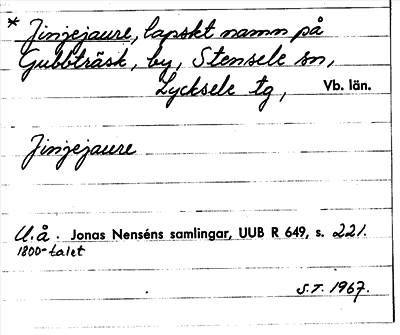 * Jinjejaure, lapskt namn på
Gubbträsk, by, Stensele sn,
Lycksele tg, Vb. län.
Jinjejaure
U.å. Jonas Nenséns samlingar, UUB R 649, s. 221.
1800-talet
S.T. 1967.